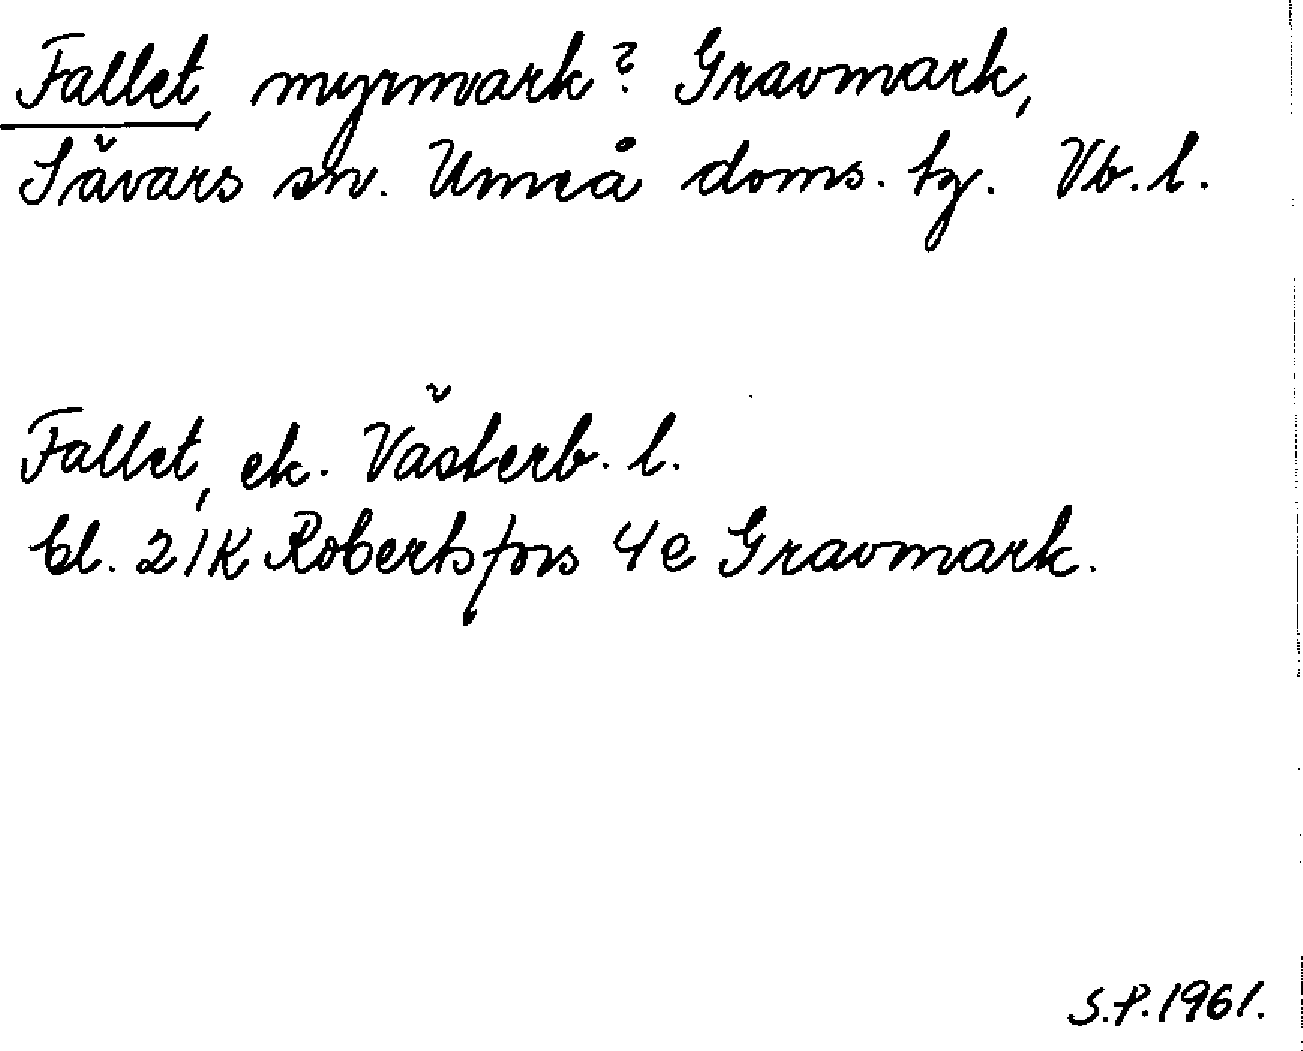 Fallet, myrmark? Gravmark,
Sävars sn. Umeå doms. tg. Vb. l.
Fallet, ek. Västerb. l.
bl. 21K Robertsfors 4e Gravmark.
S.P. 1961.